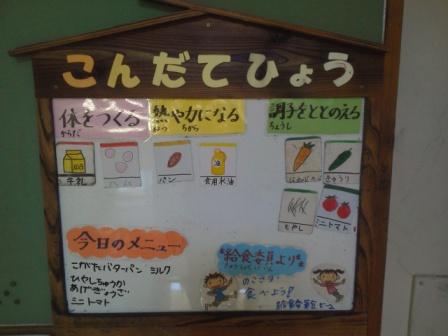 こんだてひょう
体をつくる
からだ
熱や力になる
ねつ ちから
調子をととのえる
ちょうし
牛乳
パン
食用米油
きゅうり
もやし
ミニトマト
今日のメニュー
こがたバターパン ミルク
ひやしちゅうか
あげぎょうざ
ミニトマト
給食委員より
のこさず
食べよう!
給食委員